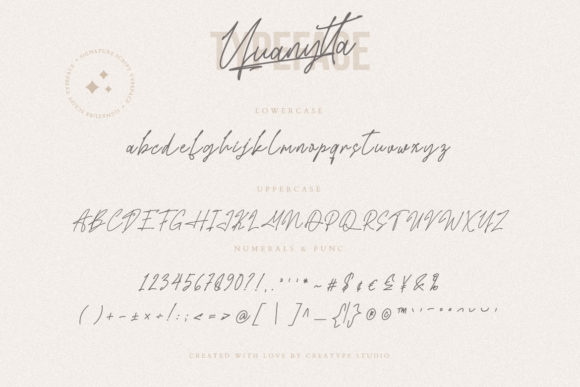 TYPEFACE
Yuanytta
SIGNATURE SCRIPT TYPEFACE • SIGNATURE SCRIPT TYPEFACE •
LOWERCASE
abcdefghijklmnopqrstuvwxyz
UPPERCASE
ABCDEFGHIJKLMNOPQRSTUVWXYZ
NUMERALS & PUNC
1234567890?!,.
~#$¢€£¥&%
()+-±×÷!:;<=>@[\]^_{|}©®™
CREATED WITH LOVE BY CREATYPE STUDIO